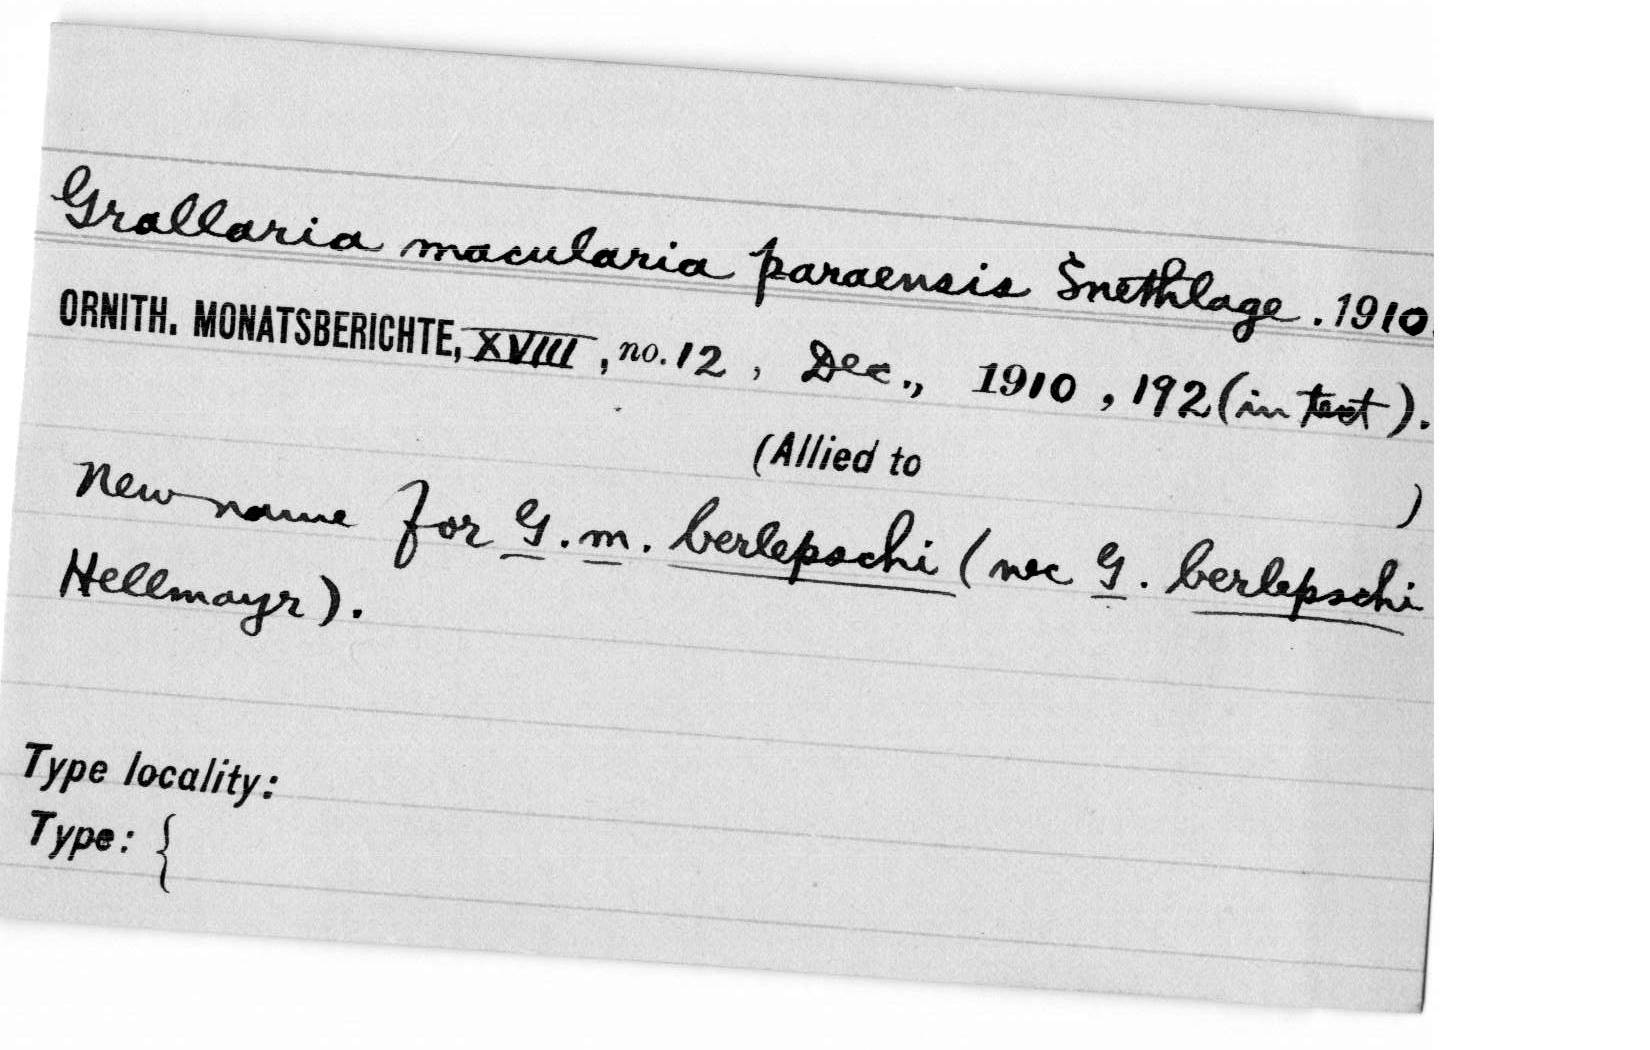 Grallaria macularia paraensis Snethlage. 1910.
ORNITH. MONATSBERICHTE, XVIII, no. 12, Dec., 1910, 192 (in text).
(Allied to )
New name for G. m. berlepschi (nec G. berlepschi
Hellmayr).
Type locality:
Type: {